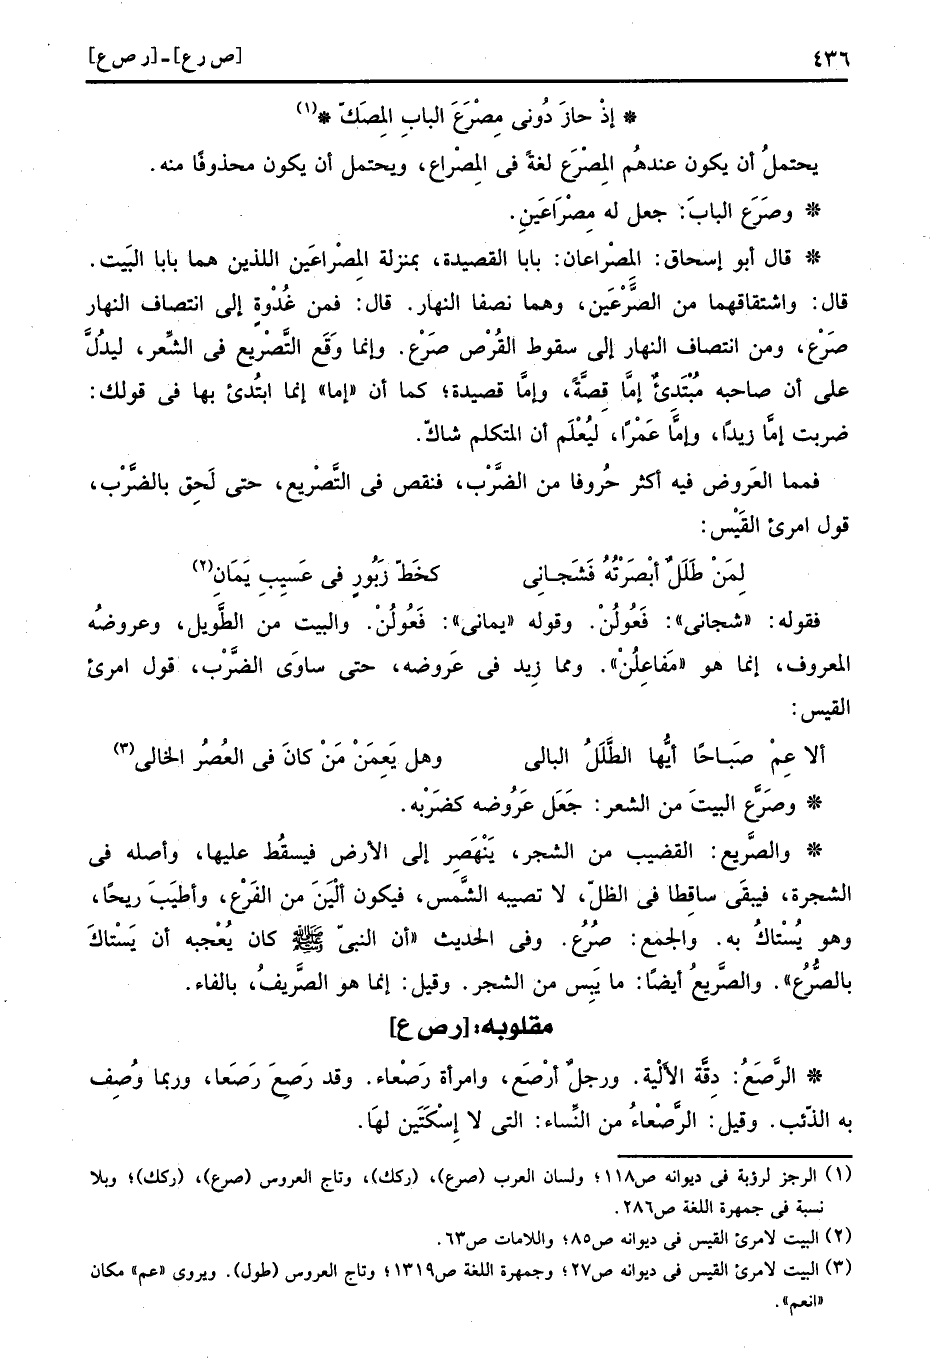 ٤٣٦ [ص ر ع] - [ر ص ع]
* إذْ حازَ دُونى مِصْرَعَ البابِ المِصَكّ *(١)
يحتملُ أن يكون عندهُم المِصْرَع لغةً فى المِصْراع، ويحتمل أن يكون محذوفًا منه.
* وصَرَع البابَ: جعل له مِصْرَاعَينِ.
* قال أبو إسحاق: المِصْراعان: بابا القصيدة، بمنزلة المِصْراعَين اللذين هما بابا البَيت.
قال: واشتقاقهما من الصَّرْعَين، وهما نصفا النهار. قال: فمن غُدْوةٍ إلى انتصاف النهار
صَرْع، ومن انتصاف النهار إلى سقوط القُرْص صَرْع. وإنما وَقَع التَّصْريع فى الشِّعر، ليدُلَّ
على أن صاحبه مُبْتَدئٌ إمَّا قِصةً، وإمَّا قصيدة؛ كما أن «إما» إنما ابتُدئ بها فى قولك:
ضربت إمَّا زيدًا، وإمَّا عَمْرًا، ليُعْلَم أن المتكلم شاكّ.
فمما العَروض فيه أكثر حُروفا من الضَّرْب، فنقص فى التَّصْريع، حتى لَحِق بالضَّرْب،
قول امرئ القَيْس:
لِمَنْ طَلَلٌ أبْصَرْتُهُ فَشَجانى كخَطّ زَبُورٍ فى عَسيبِ يَمَانِ(٢)
فقوله: «شجانى»: فَعُولُنْ. وقوله «يمانى»: فَعُولُنْ. والبيت من الطَّويل، وعروضُه
المعروف، إنما هو «مَفاعلُنْ». ومما زِيد فى عَروضه، حتى ساوَى الضَّرْب، قول امرئ
القيس:
ألا عِمْ صَبَاحًا أيُّها الطَّلَلُ البالى وهل يَعِمَنْ مَنْ كانَ فى العُصُر الخالى(٣)
* وصَرَّع البيتَ من الشعر: جَعَل عَرُوضه كضَرْبه.
* والصَّريع: القضيب من الشجر، يَنْهَصِر إلى الأرض فيسقُط عليها، وأصله فى
الشجرة، فيبقَى ساقطا فى الظلّ، لا تصيبه الشَّمس، فيكون ألْيَنَ من الفَرْع، وأطيَبَ ريحًا،
وهو يُسْتاكُ به. والجمع: صُرُع. وفى الحديث «أن النبىّ ﷺ كان يُعْجبه أن يَسْتاكَ
بالصُّرُع». والصَّريعُ أيضًا: ما يَبِس من الشجر. وقيل: إنما هو الصَّريفُ، بالفاء.
مقلوبه: [ر ص ع]
* الرَّصَعُ: دِقَّة الألْية. ورجلٌ أرْصَع، وامرأة رَصْعاء. وقد رَصِعَ رَصَعا، وربما وُصِف
به الذّئب. وقيل: الرَّصْعاءُ من النِّساء: التى لا إسْكَتَين لهَا.
(١) الرجز لرؤبة فى ديوانه ص١١٨؛ ولسان العرب (صرع)، (ركك)، وتاج العروس (صرع)، (ركك)؛ وبلا
نسبة فى جمهرة اللغة ص٢٨٦.
(٢) البيت لامرئ القيس فى ديوانه ص٨٥؛ واللامات ص٦٣.
(٣) البيت لامرئ القيس فى ديوانه ص٢٧؛ وجمهرة اللغة ص١٣١٩؛ وتاج العروس (طول). ويروى «عم» مكان
«انعم».